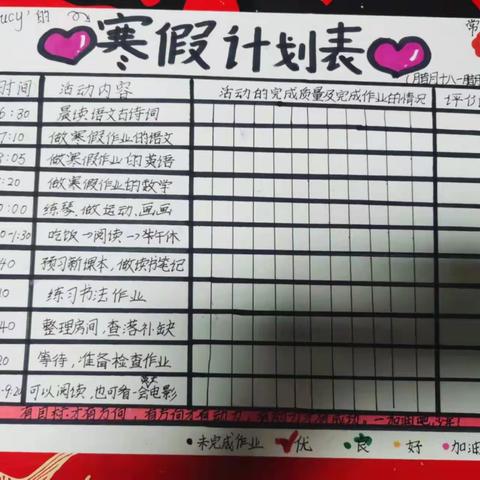 ucy'的
寒假计划表
(腊月十八一腊
时间 活动内容 活动的完成质量及完成作业的情况 评价
6:30 晨读语文古诗词
7:10 做寒假作业的语文
8:05 做寒假作业的英语
:20 做寒假作业的数学
0:00 练琴、做运动、画画
0-1:30 吃饭→阅读→午休
40 预习新课本,做读书笔记
10 练习书法作业
40 整理房间,查落补缺
20 等待,准备检查作业
-9:20 可以阅读,也可看一会电影
有目标才有方向,有方向才有动力,
未完成作业 优 良 好 加油